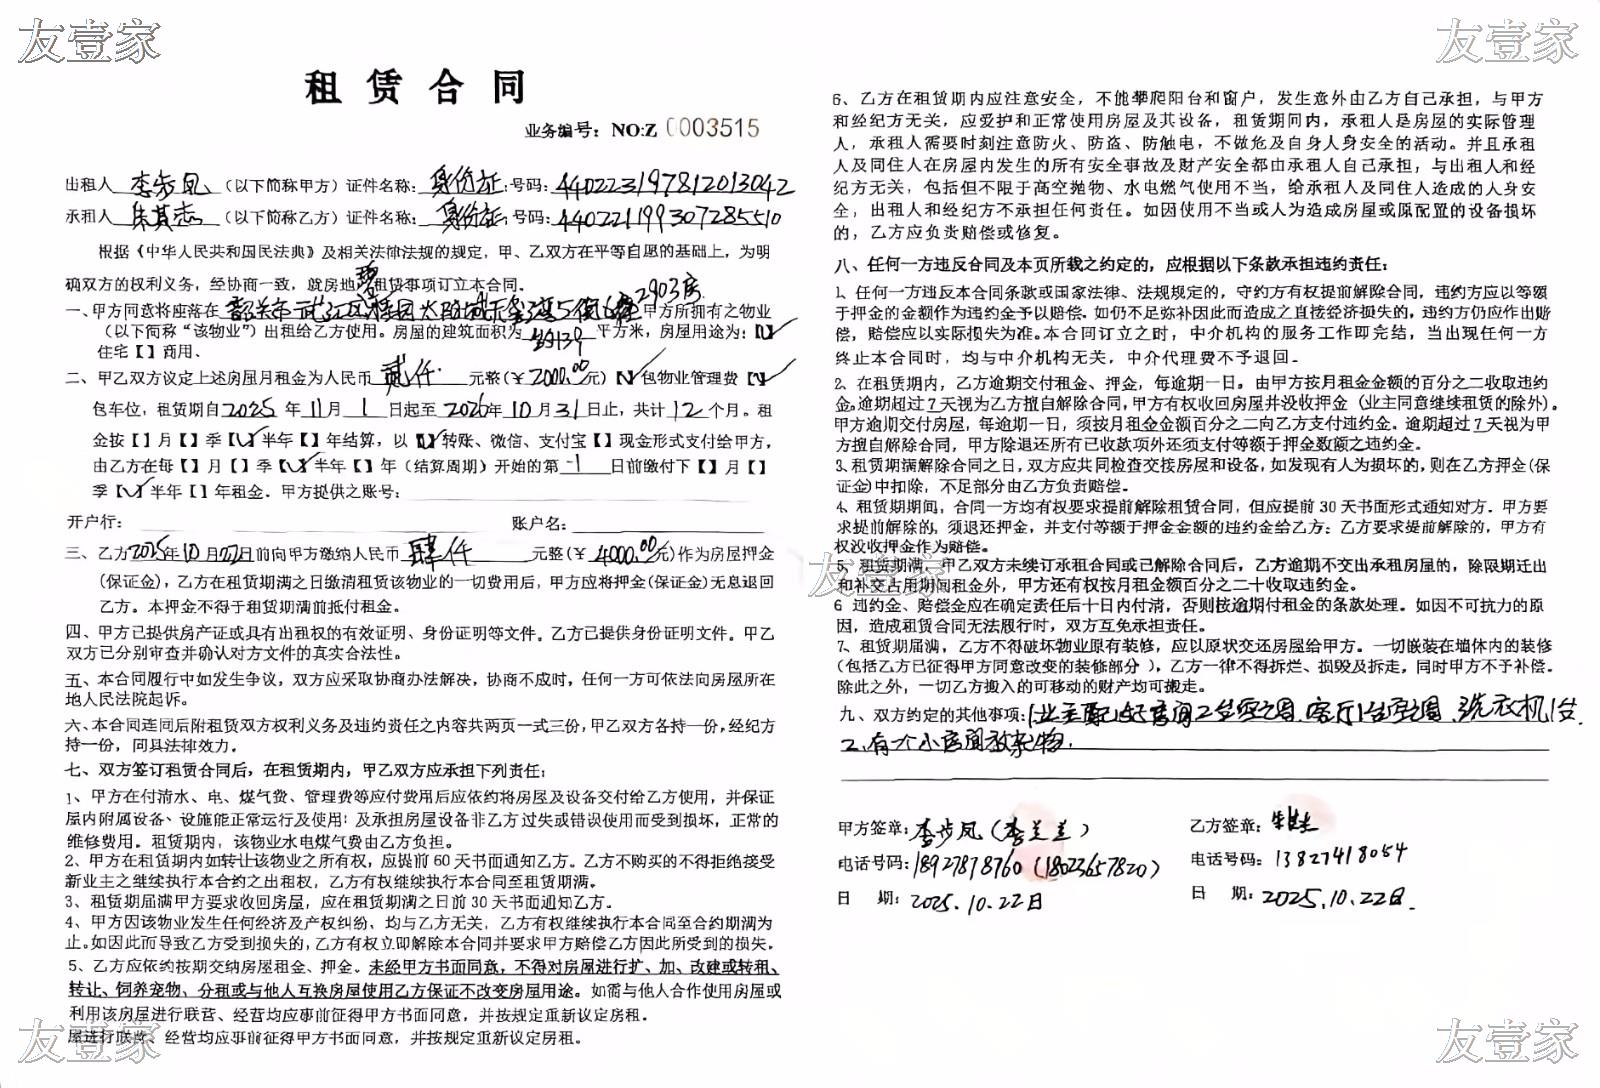 友壹家
友壹家
租赁合同
业务编号：NO:Z 0003515
出租人 李步凤 （以下简称甲方）证件名称：身份证；号码：440223197812013042
承租人 朱其志 （以下简称乙方）证件名称：身份证；号码：440221199307285510
根据《中华人民共和国民法典》及相关法律法规的规定，甲、乙双方在平等自愿的基础上，为明
确双方的权利义务，经协商一致，就房地产租赁事项订立本合同。
碧
一、甲方同意将座落在 韶关市武江区桂园太阳城 2903房 甲方所拥有之物业
（以下简称“该物业”）出租给乙方使用。房屋的建筑面积为 约139 平方米，房屋用途为：【√】
住宅【 】商用、
二、甲乙双方议定上述房屋月租金为人民币 贰仟 元整（￥2000.00元）【√】包物业管理费【√】
包车位，租赁期自2025年11月1日起至2026年10月31日止，共计12个月。租
金按【 】月【 】季【√】半年【 】年结算，以【√】转账、微信、支付宝【 】现金形式支付给甲方，
由乙方在每【 】月【 】季【√】半年【 】年（结算周期）开始的第 1 日前缴付下【 】月【 】
季【√】半年【 】年租金．甲方提供之账号：
开户行： 账户名：
三、乙方2025年10月22日前向甲方缴纳人民币 肆仟 元整（￥4000.00元）作为房屋押金
（保证金），乙方在租赁期满之日缴清租赁该物业的一切费用后，甲方应将押金（保证金）无息退回
乙方。本押金不得于租赁期满前抵付租金。
四、甲方已提供房产证或具有出租权的有效证明、身份证明等文件。乙方已提供身份证明文件。甲乙
双方已分别审查并确认对方文件的真实合法性。
五、本合同履行中如发生争议，双方应采取协商办法解决，协商不成时，任何一方可依法向房屋所在
地人民法院起诉。
六、本合同连同后附租赁双方权利义务及违约责任之内容共两页一式三份，甲乙双方各持一份，经纪方
持一份，同具法律效力。
七、双方签订租赁合同后，在租赁期内，甲乙双方应承担下列责任：
1、甲方在付清水、电、煤气费、管理费等应付费用后应依约将房屋及设备交付给乙方使用，并保证
屋内附属设备、设施能正常运行及使用；及承担房屋设备非乙方过失或错误使用而受到损坏，正常的
维修费用。租赁期内，该物业水电煤气费由乙方负担。
2、甲方在租赁期内如转让该物业之所有权，应提前60天书面通知乙方。乙方不购买的不得拒绝接受
新业主之继续执行本合约之出租权，乙方有权继续执行本合同至租赁期满。
3、租赁期届满甲方要求收回房屋，应在租赁期满之日前30天书面通知乙方。
4、甲方因该物业发生任何经济及产权纠纷，均与乙方无关，乙方有权继续执行本合同至合约期满为
止。如因此而导致乙方受到损失的，乙方有权立即解除本合同并要求甲方赔偿乙方因此所受到的损失。
5、乙方应依约按期交纳房屋租金、押金。未经甲方书面同意，不得对房屋进行扩、加、改建或转租、
转让、饲养宠物、分租或与他人互换房屋使用乙方保证不改变房屋用途。如需与他人合作使用房屋或
利用该房屋进行联营、经营均应事前征得甲方书面同意，并按规定重新议定房租。
屋进行联营、经营均应事前征得甲方书面同意，并按规定重新议定房租。
友壹家
6、乙方在租赁期内应注意安全，不能攀爬阳台和窗户，发生意外由乙方自己承担，与甲方
和经纪方无关，应爱护和正常使用房屋及其设备，租赁期间内，承租人是房屋的实际管理
人，承租人需要时刻注意防火、防盗、防触电，不做危及自身人身安全的活动。并且承租
人及同住人在房屋内发生的所有安全事故及财产安全都由承租人自己承担，与出租人和经
纪方无关，包括但不限于高空抛物、水电燃气使用不当，给承租人及同住人造成的人身安
全，出租人和经纪方不承担任何责任。如因使用不当或人为造成房屋或原配置的设备损坏
的，乙方应负责赔偿或修复。
八、任何一方违反合同及本页所载之约定的，应根据以下条款承担违约责任：
1、任何一方违反本合同条款或国家法律、法规规定的，守约方有权提前解除合同，违约方应以等额
于押金的金额作为违约金予以赔偿．如仍不足弥补因此而造成之直接经济损失的，违约方仍应作出赔
偿，赔偿应以实际损失为准。本合同订立之时，中介机构的服务工作即完结，当出现任何一方
终止本合同时，均与中介机构无关，中介代理费不予退回．
2、在租赁期内，乙方逾期交付租金、押金，每逾期一日。由甲方按月租金金额的百分之二收取违约
金。逾期超过7天视为乙方擅自解除合同，甲方有权收回房屋并没收押金（业主同意继续租赁的除外）。
甲方逾期交付房屋，每逾期一日，须按月租金金额百分之二向乙方支付违约金。逾期超过7天视为甲
方擅自解除合同，甲方除退还所有已收款项外还须支付等额于押金数额之违约金。
3、租赁期满解除合同之日，双方应共同检查交接房屋和设备，如发现有人为损坏的，则在乙方押金（保
证金）中扣除，不足部分由乙方负责赔偿。
4、租赁期期间，合同一方均有权要求提前解除租赁合同，但应提前30天书面形式通知对方．甲方要
求提前解除的，须退还押金，并支付等额于押金金额的违约金给乙方；乙方要求提前解除的，甲方有
权没收押金作为赔偿。
友壹家
5、租赁期满，甲乙双方未续订承租合同或已解除合同后，乙方逾期不交出承租房屋的，除限期迁出
和补交占用期间租金外，甲方还有权按月租金额百分之二十收取违约金。
6 违约金、赔偿金应在确定责任后十日内付清，否则按逾期付租金的条款处理。如因不可抗力的原
因，造成租赁合同无法履行时，双方互免承担责任。
7、租赁期届满，乙方不得破坏物业原有装修，应以原状交还房屋给甲方。一切嵌装在墙体内的装修
（包括乙方已征得甲方同意改变的装修部分），乙方一律不得拆烂、损毁及拆走，同时甲方不予补偿。
除此之外，一切乙方搬入的可移动的财产均可搬走。
九、双方约定的其他事项：1、业主配好房间2台空调、客厅1台空调、洗衣机1台．
2、有一个小房间放杂物．
甲方签章：李步凤（李兰兰）
电话号码：18927878760（18023657820）
日 期：2025.10.22日
乙方签章：
电话号码：13827418054
日 期：2025.10.22日．
友壹家